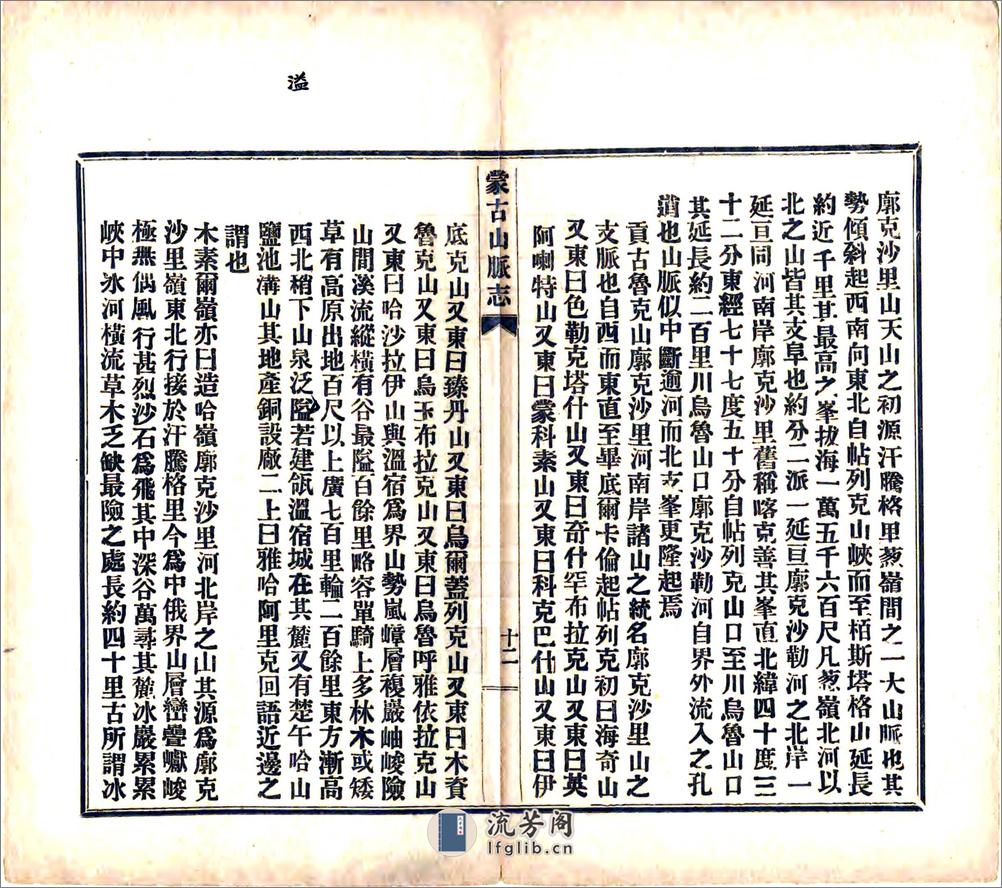 廓克沙里山天山之初源汗騰格里蔥嶺間之一大山脈也其
勢傾斜起西南向東北自帖列克山峽而至栢斯塔格山延長
約近千里其最高之峯拔海一萬五千六百尺凡蔥嶺北河以
北之山皆其支阜也約分二派一延亘廓克沙勒河之北岸一
延亘同河南岸廓克沙里舊稱喀克善其峯直北緯四十度三
十二分東經七十七度五十分自帖列克山口至川烏魯山口
其延長約二百里川烏魯山口廓克沙勒河自界外流入之孔
道也山脈似中斷逾河而北支峯更隆起焉
貢古魯克山廓克沙里河南岸諸山之統名廓克沙里山之
支脈也自西而東直至畢底爾卡倫起帖列克初曰海奇山
又東曰色勒克塔什山又東曰奇什罕布拉克山又東曰英
阿喇特山又東曰蒙科素山又東曰科克巴什山又東曰伊
蒙古山脈志
十二
底克山又東曰臻丹山又東曰烏爾蓋列克山又東曰木資
魯克山又東曰烏玉布拉克山又東曰烏魯呼雅依拉克山
又東曰哈沙拉伊山與溫宿爲界山勢嵐嶂層複巖岫峻險
山間溪流縱橫有谷最隘百餘里略容單騎上多林木或矮
草有高原出地百尺以上廣七百里輪二百餘里東方漸高
西北稍下山泉泛隘若建瓴溫宿城在其麓又有楚午哈山
鹽池溝山其地產銅設廠二上曰雅哈阿里克回語近邊之
謂也
木素爾嶺亦曰造哈嶺廓克沙里河北岸之山其源爲廓克
沙里嶺東北行接於汗騰格里今爲中俄界山層巒疊巘峻
極燕偶風行甚烈沙石爲飛其中深谷萬尋其麓冰巖累累
峽中冰河橫流草木乏缺最險之處長約四十里古所謂冰
溢
流芳阁
lfglib.cn